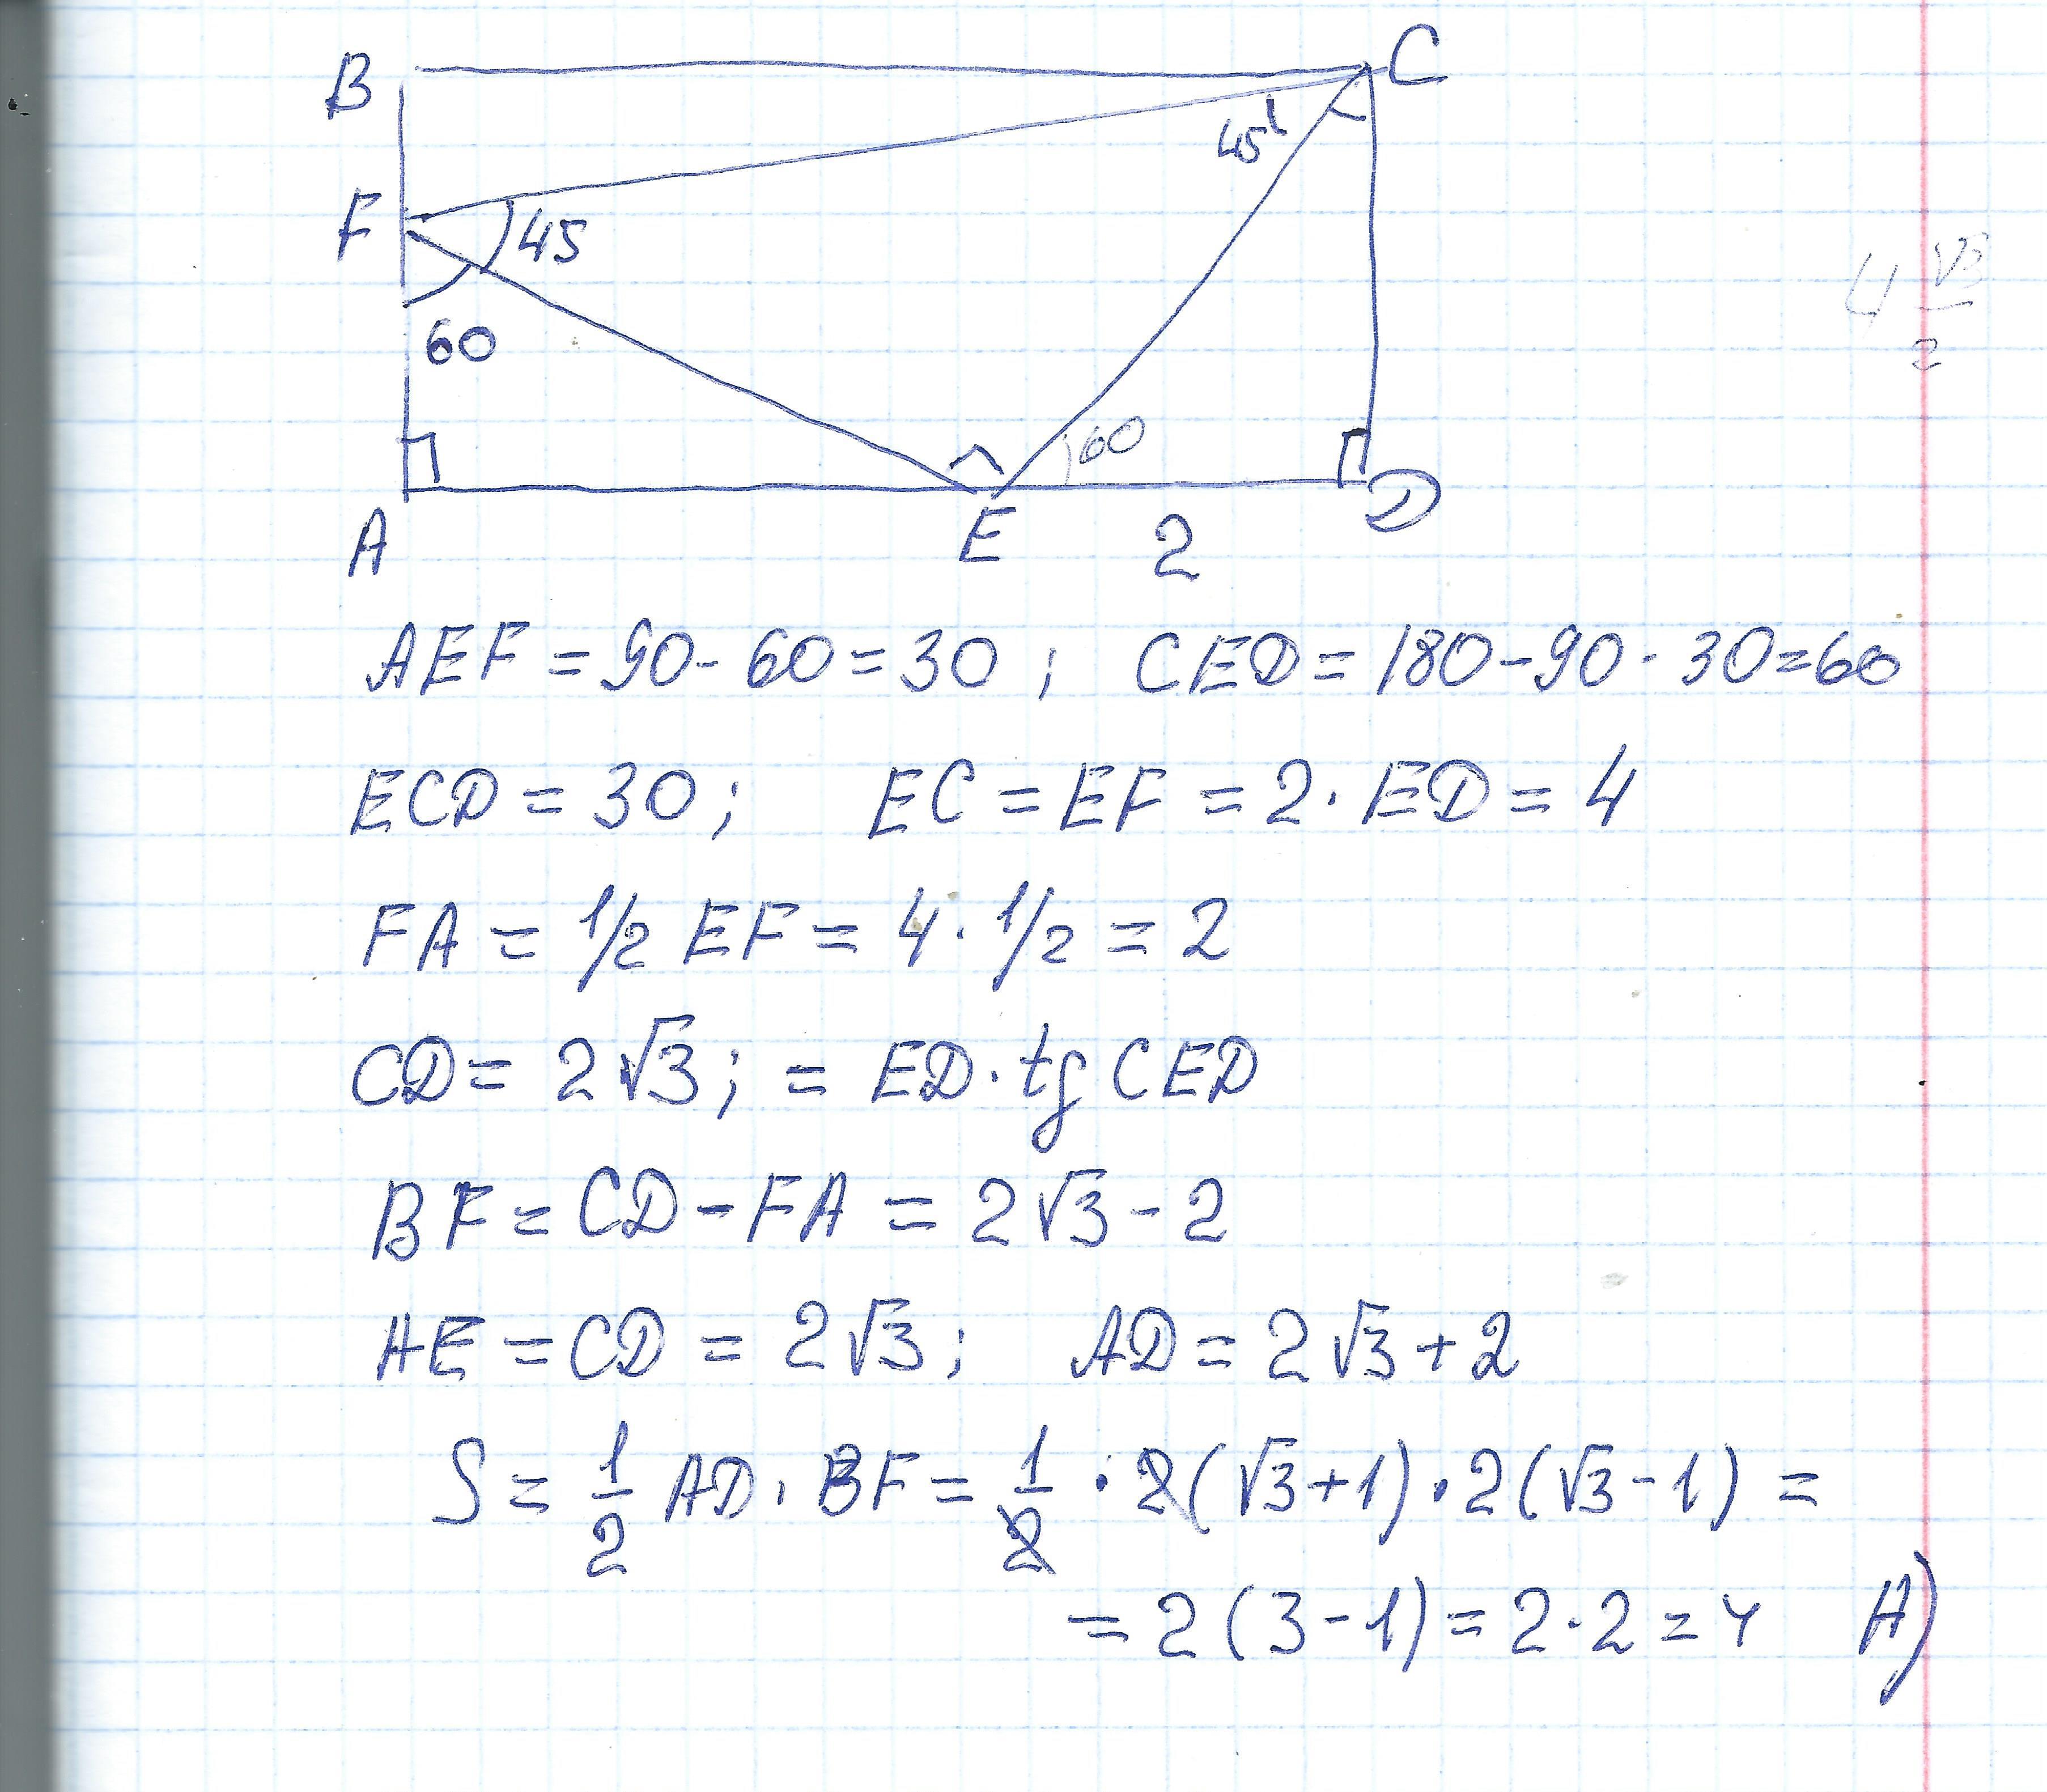 B
C
45
F
45
4 √3/2
60
60
A
E
2
D
AEF = 90 - 60 = 30 ; CED = 180 - 90 - 30 = 60
ECD = 30 ; EC = EF = 2 · ED = 4
FA = 1/2 EF = 4 · 1/2 = 2
CD = 2√3 ; = ED · tg CED
BF = CD - FA = 2√3 - 2
AE = CD = 2√3 ; AD = 2√3 + 2
S = 1/2 AD · BF = 1/2 · 2(√3+1) · 2(√3-1) =
= 2(3-1) = 2·2 = 4 A)